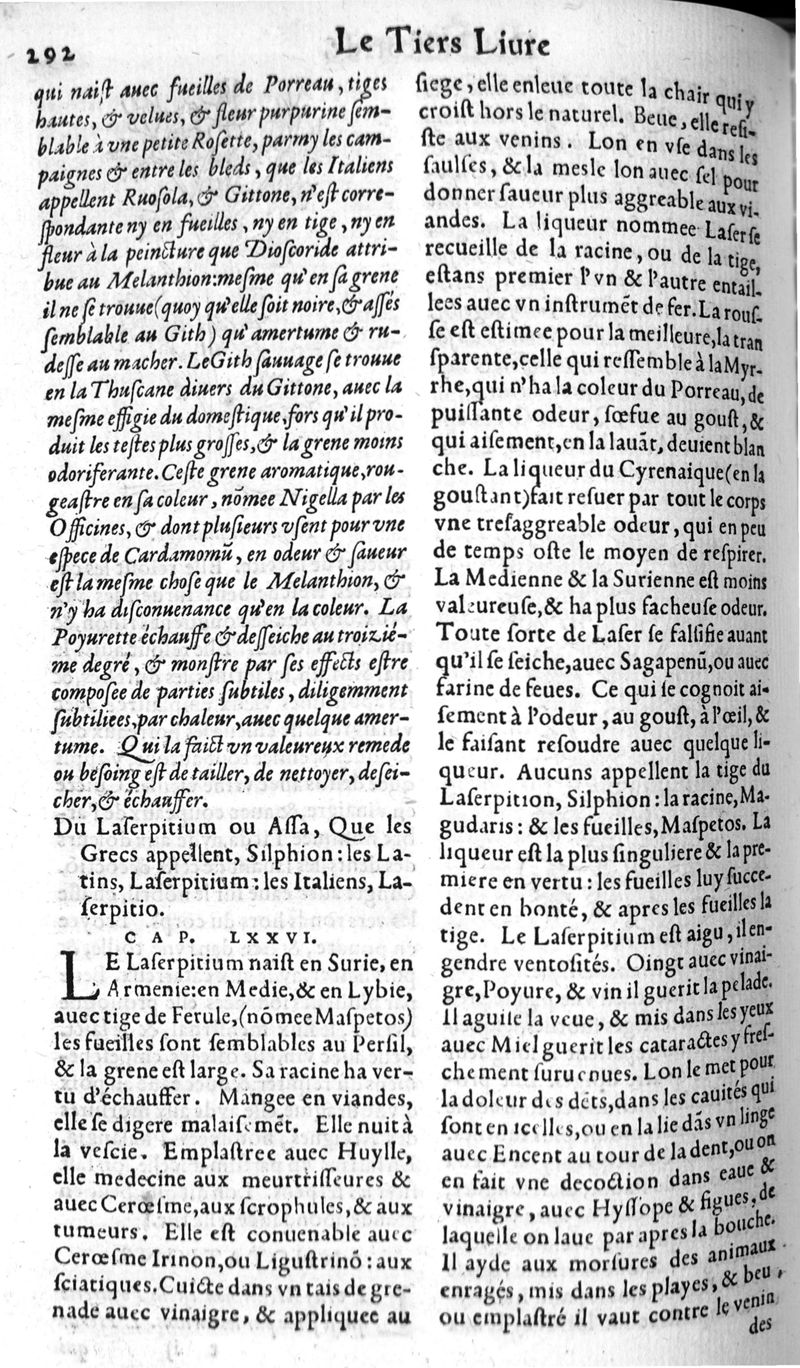 292
Le Tiers Liure
qui naiſt auec fueilles de Porreau, tiges
hautes, & velues, & fleur purpurine ſem-
blable à vne petite Roſette, parmy les cam-
paignes & entre les bleds, que les Italiens
appellent Ruoſola, & Gittone, n'eſt corre-
ſpondante ny en fueilles, ny en tige, ny en
fleur à la peincture que Dioſcoride attri-
bue au Melanthion: meſme qu'en ſa grene
il ne ſe trouue (quoy qu'elle ſoit noire, & aſſés
ſemblable au Gith) qu'amertume & ru-
deſſe au macher. Le Gith ſauuage ſe trouue
en la Thuſcane diuers du Gittone, auec la
meſme effigie du domeſtique, fors qu'il pro-
duit les teſtes plus groſſes, & la grene moins
odoriferante. Ceſte grene aromatique, rou-
geaſtre en ſa coleur, nōmee Nigella par les
Officines, & dont pluſieurs vſent pour vne
eſpece de Cardamomū, en odeur & ſaueur
eſt la meſme choſe que le Melanthion, &
n'y ha diſconuenance qu'en la coleur. La
Poyurette échauffe & deſſeiche au troizié-
me degré, & monſtre par ſes effects eſtre
compoſee de parties ſubtiles, diligemment
ſubtiliees, par chaleur, auec quelque amer-
tume. Qui la faict vn valeureux remede
ou beſoing eſt de tailler, de nettoyer, deſei-
cher, & échauffer.
Du Laſerpitium ou Aſſa, Que les
Grecs appellent, Silphion: les La-
tins, Laſerpitium: les Italiens, La-
ſerpitio.
CAP. LXXVI.
LE Laſerpitium naiſt en Surie, en
Armenie: en Medie, & en Lybie,
auec tige de Ferule, (nōmee Maſpetos)
les fueilles ſont ſemblables au Perſil,
& la grene eſt large. Sa racine ha ver-
tu d'échauffer. Mangee en viandes,
elle ſe digere malaiſemēt. Elle nuit à
la veſcie. Emplaſtree auec Huylle,
elle medecine aux meurtriſſeures &
auec Cerœſme, aux ſcrophules, & aux
tumeurs. Elle eſt conuenable auec
Cerœſme Irinon, ou Liguſtrinō: aux
ſciatiques. Cuicte dans vn tais de gre-
nade auec vinaigre, & appliquee au
ſiege, elle enleue toute la chair qui y
croiſt hors le naturel. Beue, elle reſi-
ſte aux venins. Lon en vſe dans les
ſaulſes, & la mesle lon auec ſel pour
donner ſaueur plus aggreable aux vi-
andes. La liqueur nommee Laſer ſe
recueille de la racine, ou de la tige,
eſtans premier l'vn & l'autre entail-
lees auec vn inſtrumēt de fer. La rouſ-
ſe eſt eſtimee pour la meilleure, la tran
ſparente, celle qui reſſemble à la Myr-
rhe, qui n'ha la coleur du Porreau, de
puiſſante odeur, ſœfue au gouſt, &
qui aiſement, en la lauāt, deuient blan
che. La liqueur du Cyrenaique (en la
gouſtant) fait reſuer par tout le corps
vne treſaggreable odeur, qui en peu
de temps oſte le moyen de reſpirer.
La Medienne & la Surienne eſt moins
valeureuſe, & ha plus facheuſe odeur.
Toute ſorte de Laſer ſe falſifie auant
qu'il ſe ſeiche, auec Sagapenū, ou auec
farine de feues. Ce qui ſe cognoit ai-
ſement à l'odeur, au gouſt, à l'œil, &
le faiſant reſoudre auec quelque li-
queur. Aucuns appellent la tige du
Laſerpition, Silphion: la racine, Ma-
gudaris: & les fueilles, Maſpetos. La
liqueur eſt la plus ſinguliere & la pre-
miere en vertu: les fueilles luy ſucce-
dent en bonté, & apres les fueilles la
tige. Le Laſerpitium eſt aigu, il en-
gendre ventoſités. Oingt auec vinai-
gre, Poyure, & vin il guerit la pelade.
Il aguiſe la veue, & mis dans les yeux
auec Miel guerit les cataractes y freſ-
chement ſuruenues. Lon le met pour
la doleur des dēts, dans les cauités qui
ſont en icelles, ou en la lie dās vn linge
auec Encent au tour de la dent, ou on
en fait vne decoction dans eaue &
vinaigre, auec Hyſſope & figues, de
laquelle on laue par apres la bouche.
Il ayde aux morſures des animaux
enragés, mis dans les playes, & beu,
ou emplaſtré il vaut contre le venin
des